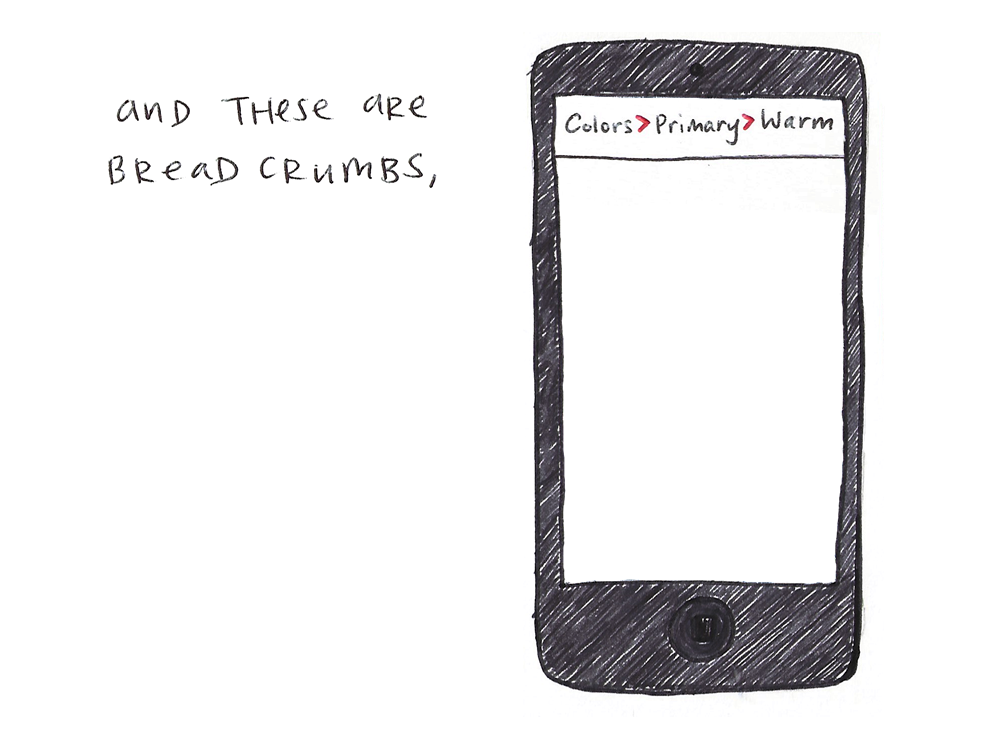 and THese are
BReaD CRumBS,
Colors>Primary>Warm